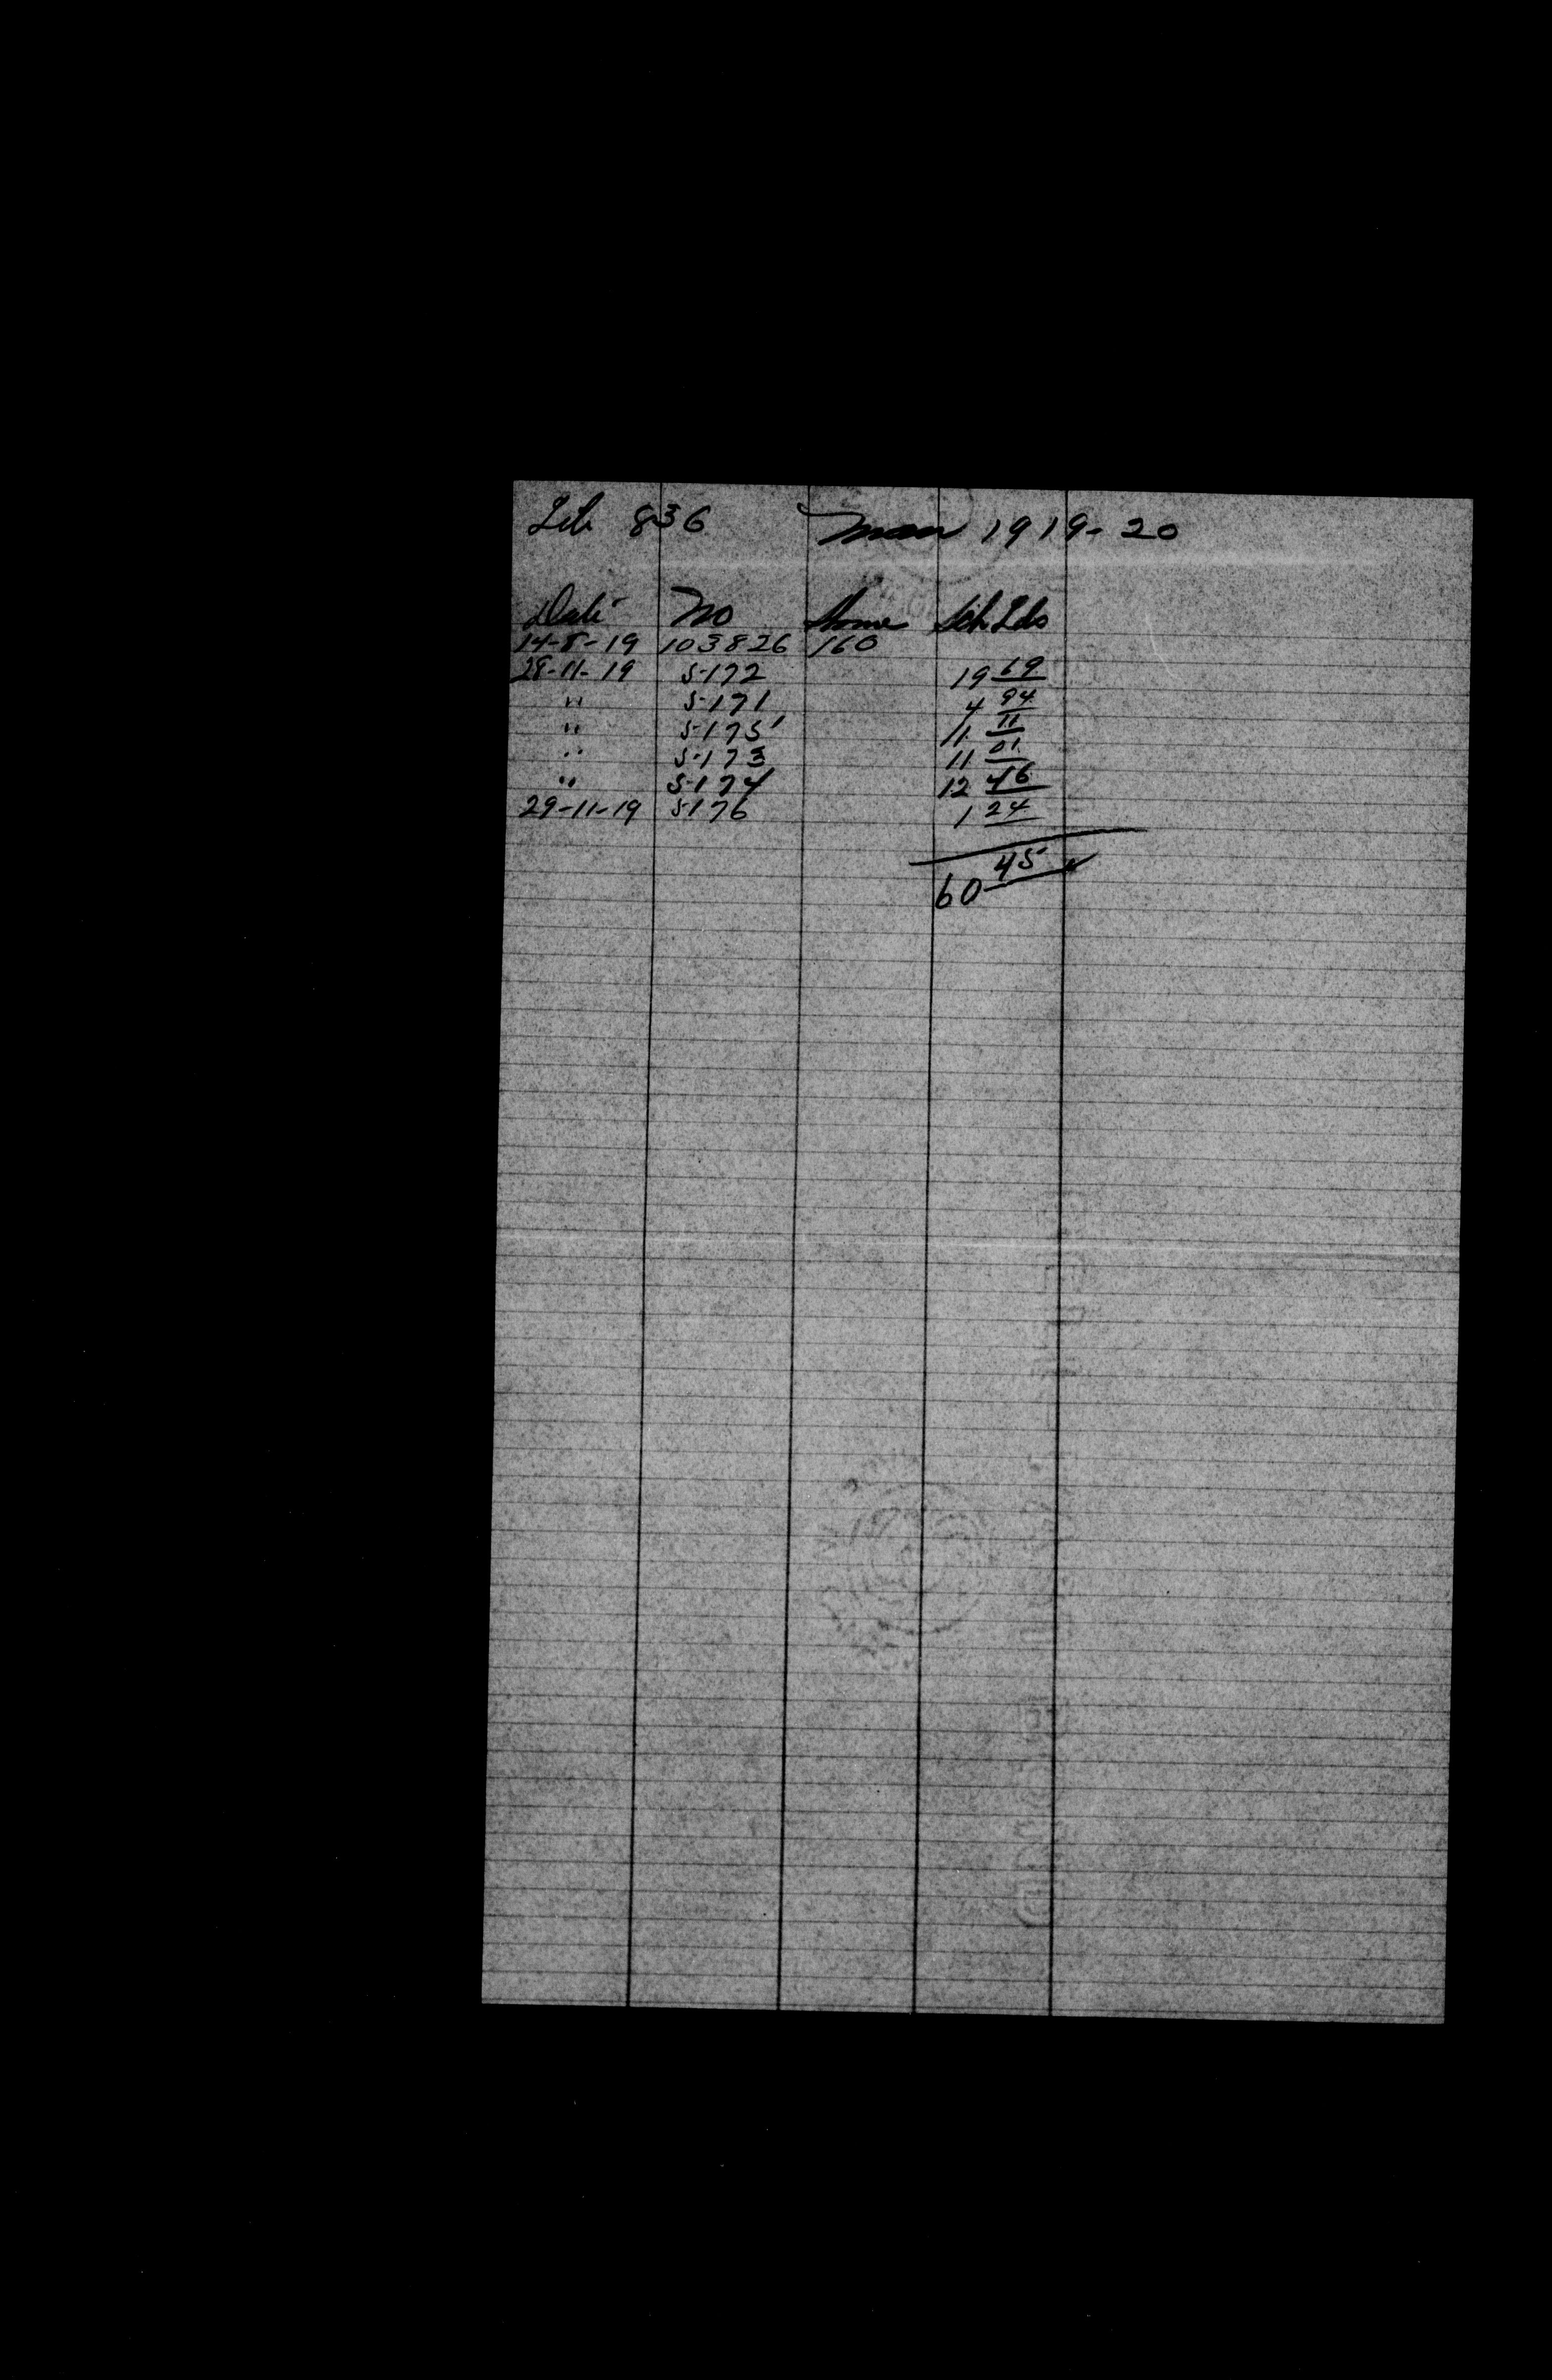 Lib 836 Man 1919-20
Date No Home Sch Lds
14-8-19 103826 160
28-11-19 5172 19 69
" 5171 4 94
" 5175 11 11
" 5173 11 01
" 5174 12 46
29-11-19 5176 1 24
60 45